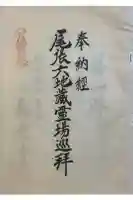 奉納經
尾張六地蔵霊場巡拝